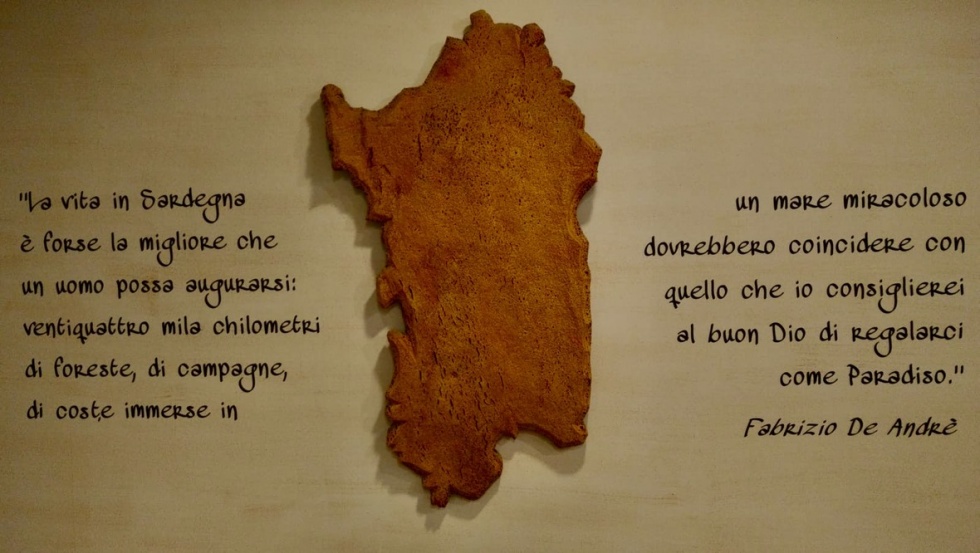 "La vita in Sardegna
è forse la migliore che
un uomo possa augurarsi:
ventiquattro mila chilometri
di foreste, di campagne,
di coste immerse in
un mare miracoloso
dovrebbero coincidere con
quello che io consiglierei
al buon Dio di regalarci
come Paradiso."
Fabrizio De Andrè